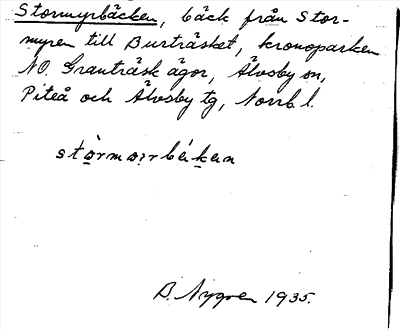 Stormyrbäcken, bäck från Stor-
myren till Burträsket, kronoparken
NO. Granträsk ägor, Älvsby sn,
Piteå och Älvsby tg, Norrb l.
B. Nygren 1935.